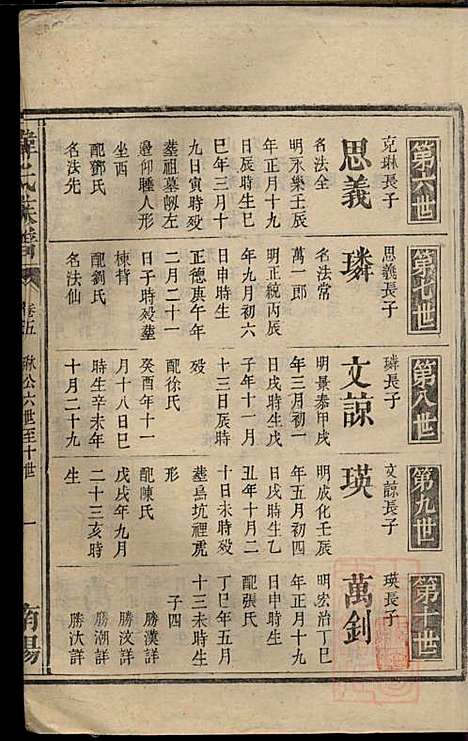 第六世
克琳長子
思義
名法全
明永樂壬辰
年正月十九
日辰時生巳
巳年三月十
九日寅時歿
塟祖墓𡶶左
疊仰睡人形
坐酉
配鄧氏
名法先
第七世
思義長子
璘
名法常
萬一郎
明正統丙辰
年九月初六
日申時生
正德庚午年
二月二十一
日子時歿塟
棟背
配劉氏
名法仙
第八世
璘長子
文諒
明景泰甲戌
年三月初一
日戌時生戊
子年十一月
十三日辰時
歿
配徐氏
癸酉年十一
月十八日巳
時生辛未年
十月二十九
第九世
文諒長子
瑛
明成化壬辰
年五月初四
日戌時生乙
丑年十月二
十日未時歿
塟烏坑裡虎
形
配陳氏
戊戌年九月
二十三亥時
生
第十世
瑛長子
萬釗
明宏治丁巳
年正月十九
日申時生
配張氏
丁巳年五月
十三未時生
子四
勝漢詳
勝汶詳
勝潮詳
勝汰詳
氏族譜
卷五
公六世至十世
一
南陽